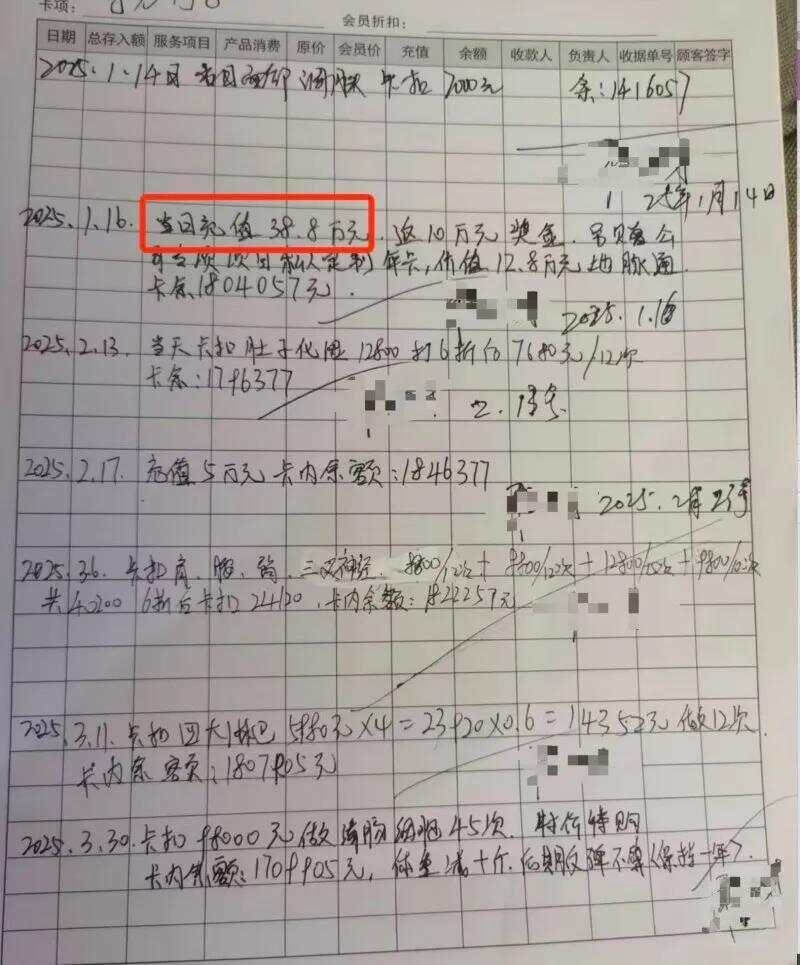 卡项：
会员折扣：
日期 总存入额 服务项目 产品消费 原价 会员价 充值 余额 收款人 负责人 收据单号 顾客签字
2025.1.14日 卡扣 7000元 余：1416057
2025年1月14日
2025.1.16. 当日充值38.8万元. 返10万元奖金.
年卡，价值12.8万元地脉通
卡余1804057元.
2025.1.16
2025.2.13. 当天卡扣肚子化湿12800打6折后7680元/12次
卡余：1796377
2.13号
2025.2.17. 充值5万元 卡内余额：1846377
2025.2月
2025.3.6. 卡扣肩、腰、 、三叉神经. 9800/12次+9800/12次+ +9800/12次
共40200 6折后卡扣24120，卡内余额：1822257元
2025.3.11. 卡扣四大淋巴 5980元×4=23920×0.6=14352元 做12次
卡内余额：1807905元
2025.3.30. 卡扣98000元做 45次. 特价特购
卡内余额：1709905元，体重减十斤. 后期反弹不算(保持一年).